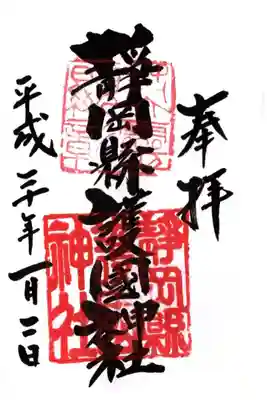 奉拝
静岡縣護國神社
平成二十年一月二日
静岡縣
神社